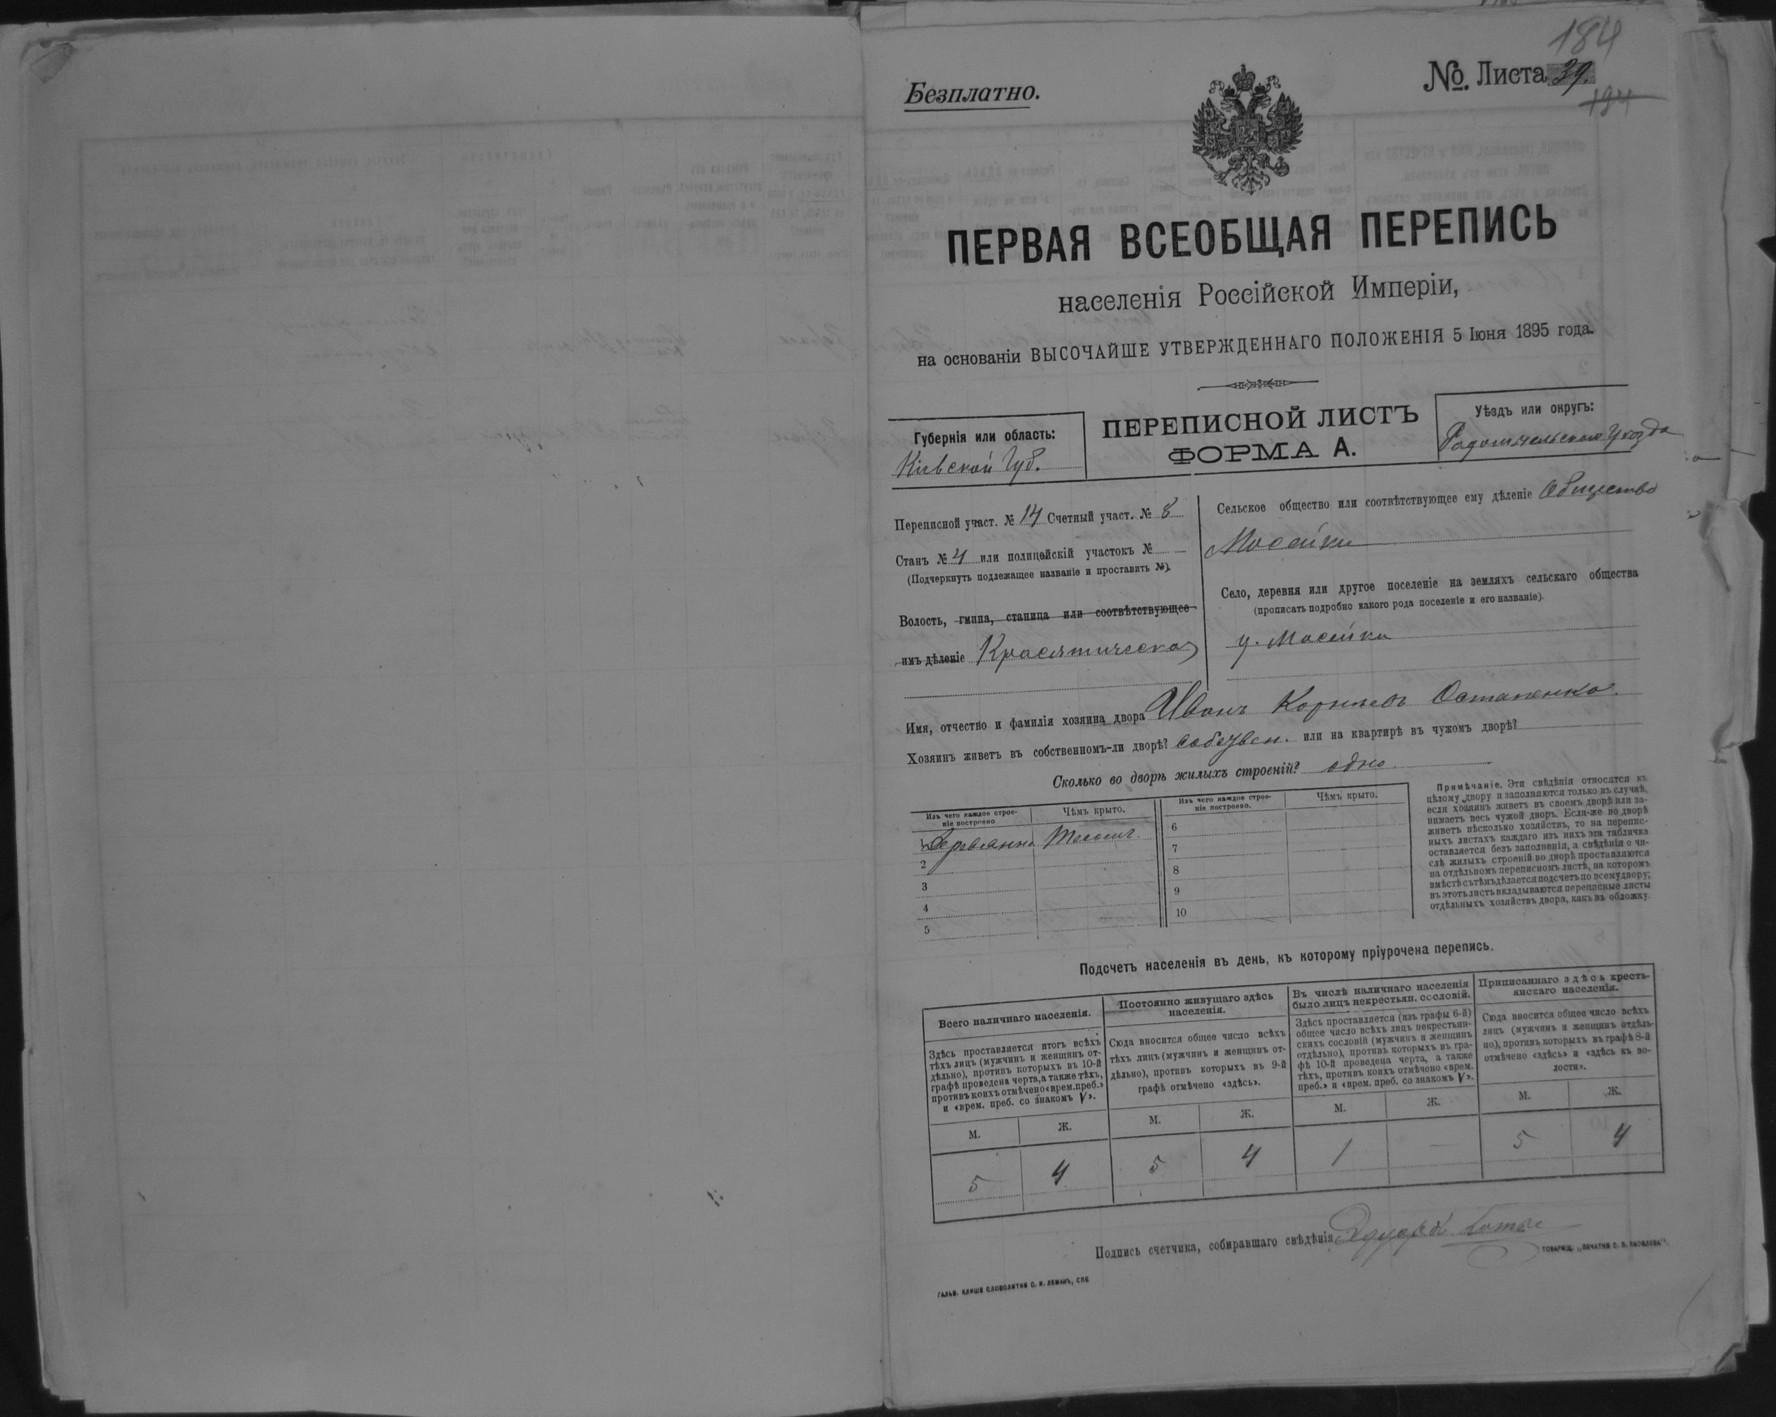 184
Безплатно.
№. Листа 39.
194
ПЕРВАЯ ВСЕОБЩАЯ ПЕРЕПИСЬ
населенія Россійской Имперіи,
на основаніи ВЫСОЧАЙШЕ УТВЕРЖДЕННАГО ПОЛОЖЕНІЯ 5 Іюня 1895 года.
Губернія или область:
Кіевской Губ.
ПЕРЕПИСНОЙ ЛИСТЪ
ФОРМА А.
Уѣздъ или округъ:
Радомысльскаго Уѣзда
Переписной участ. № 14 Счетный участ. № 8
Станъ № 4 или полицейскій участокъ № —
(Подчеркнуть подлежащее названіе и проставить №).
Волость, гмина, станица или соотвѣтствующее
имъ дѣленіе Красятичская
Сельское общество или соотвѣтствующее ему дѣленіе Общество
Мосейки
Село, деревня или другое поселеніе на земляхъ сельскаго общества
(прописать подробно какого рода поселеніе и его названіе).
Мосейки
Имя, отчество и фамилія хозяина двора Иванъ Корнѣевъ Остапенко.
Хозяинъ живетъ въ собственномъ-ли дворѣ? собствен. или на квартирѣ въ чужомъ дворѣ?
Сколько во дворѣ жилыхъ строеній? одно
Изъ чего каждое строе-
ніе построено
Чѣмъ крыто.
1 Деревянно
2
3
4
5
Изъ чего каждое строе-
ніе построено.
Чѣмъ крыто.
6
7
8
9
10
Примѣчаніе. Эти свѣдѣнія относятся къ
цѣлому двору и заполняются только въ случаѣ,
если хозяинъ живетъ въ своемъ дворѣ или за-
нимаетъ весь чужой дворъ. Если-же во дворѣ
живетъ нѣсколько хозяйствъ, то на перепис-
ныхъ листахъ каждаго изъ нихъ эта табличка
оставляется безъ заполненія, а свѣдѣнія о чи-
слѣ жилыхъ строеній во дворѣ проставляются
на отдѣльномъ переписномъ листѣ, на которомъ
вмѣстѣ съ тѣмъ дѣлается подсчетъ по всему двору;
въ этотъ листъ вкладываются переписные листы
отдѣльныхъ хозяйствъ двора, какъ въ обложку.
Подсчетъ населенія въ день, къ которому пріурочена перепись.
Всего наличнаго населенія.
Здѣсь проставляется итогъ всѣхъ
тѣхъ лицъ (мужчинъ и женщинъ от-
дѣльно), противъ которыхъ въ 10-й
графѣ проведена черта, а также тѣхъ,
противъ коихъ отмѣчено «врем. преб.»
и «врем. преб. со знакомъ V».
М. Ж.
5 4
Постоянно живущаго здѣсь
населенія.
Сюда вносится общее число всѣхъ
тѣхъ лицъ (мужчинъ и женщинъ от-
дѣльно), противъ которыхъ въ 9-й
графѣ отмѣчено «здѣсь».
М. Ж.
5 4
Въ числѣ наличнаго населенія
было лицъ некрестьян. сословій.
Здѣсь проставляется (изъ графы 6-й)
общее число всѣхъ лицъ некрестьян-
скихъ сословій (мужчинъ и женщинъ
отдѣльно), противъ которыхъ въ гра-
фѣ 10-й проведена черта, а также
тѣхъ, противъ коихъ отмѣчено «врем.
преб.» и «врем. преб. со знакомъ V».
М. Ж.
1 —
Приписаннаго здѣсь кресть-
янскаго населенія.
Сюда вносится общее число всѣхъ
лицъ (мужчинъ и женщинъ отдѣль-
но), противъ которыхъ въ графѣ 8-й
отмѣчено «здѣсь» и «здѣсь къ во-
лости».
М. Ж.
5 4
Подпись счетчика, собиравшаго свѣдѣнія Эдуардъ
ГАЛЬВ. КЛИШЕ СЛОВОЛИТНИ О. И. ЛЕМАНЪ, СПБ
ТОВАРИЩ. „ПЕЧАТНЯ С. П. ЯКОВЛЕВА".